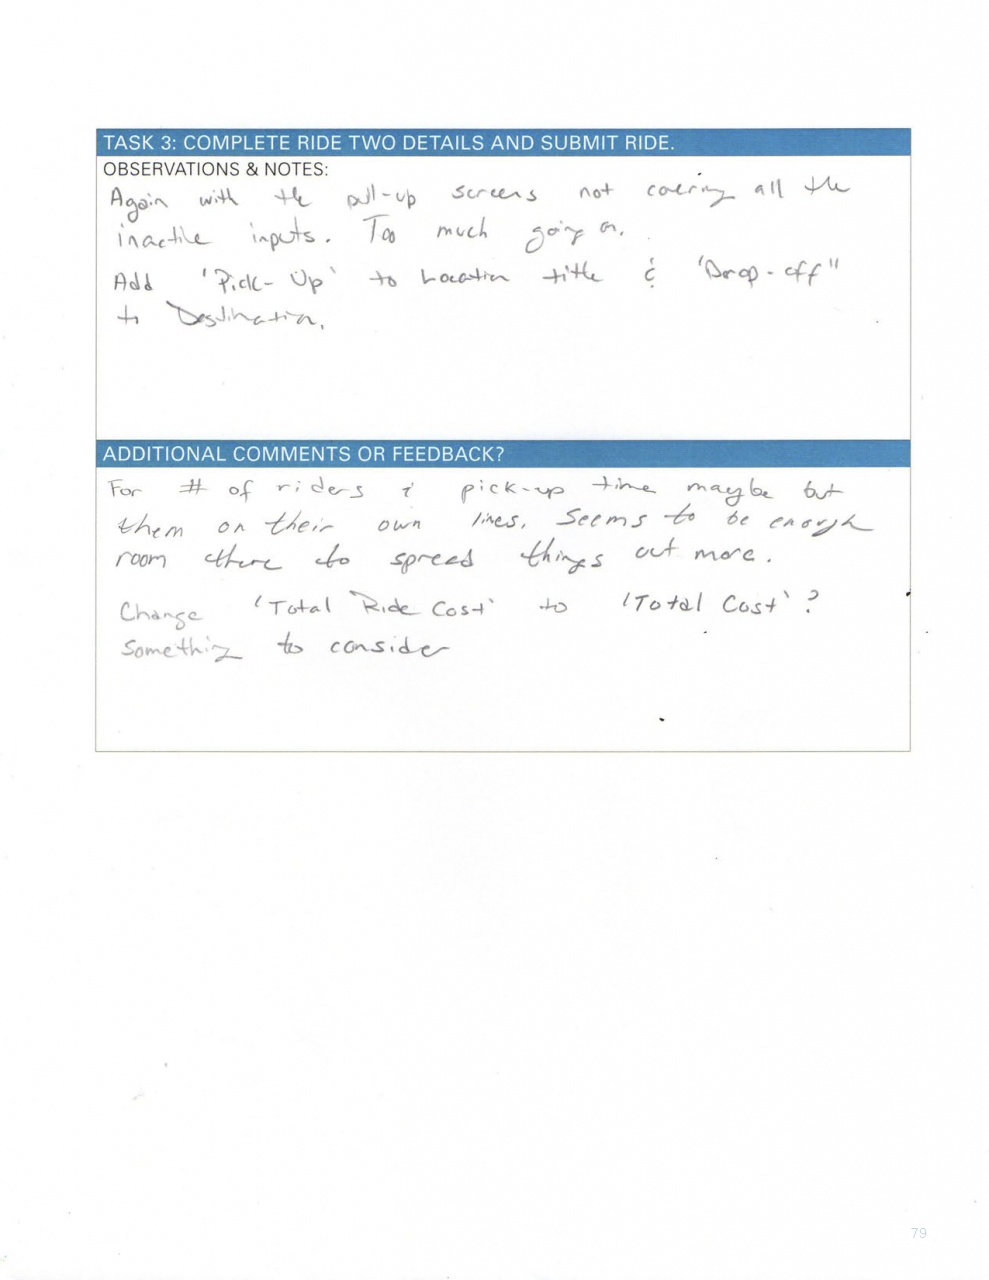 TASK 3: COMPLETE RIDE TWO DETAILS AND SUBMIT RIDE.
OBSERVATIONS & NOTES:
Again with the pull-up screens not covering all the
inactive inputs. Too much going on.
Add 'Pick-Up' to Location title & 'Drop-off"
to Destination.
ADDITIONAL COMMENTS OR FEEDBACK?
For # of riders & pick-up time maybe but
them on their own lines. Seems to be enough
room there to spread things out more.
Change 'Total Ride Cost' to 'Total Cost'?
Something to consider
79